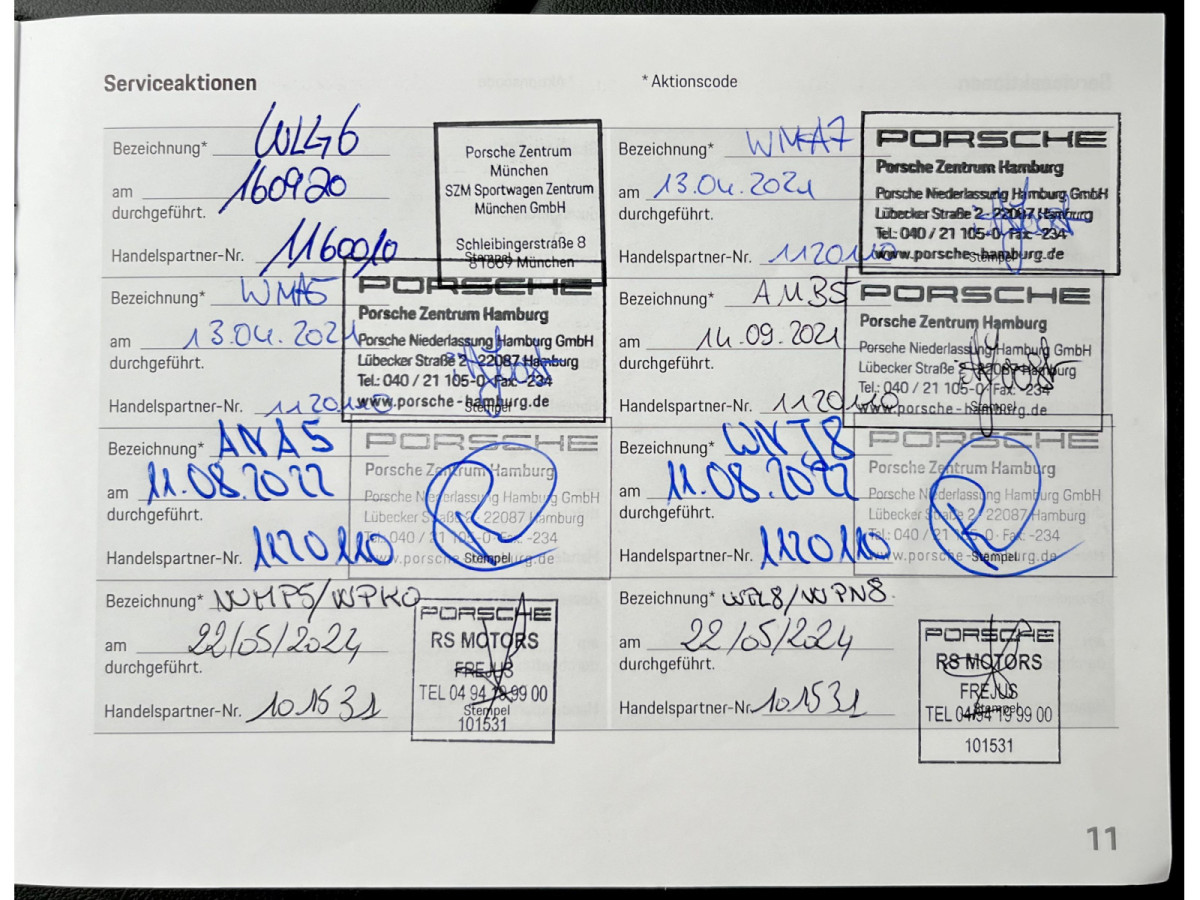 Serviceaktionen
* Aktionscode
Bezeichnung* WLG6
am 160920
durchgeführt.
Handelspartner-Nr. 1160010
Porsche Zentrum
München
SZM Sportwagen Zentrum
München GmbH
Schleibingerstraße 8
81669 München
Stempel
Bezeichnung* WMA7
am 13.04.2021
durchgeführt.
Handelspartner-Nr. 1120110
PORSCHE
Porsche Zentrum Hamburg
Porsche Niederlassung Hamburg GmbH
Lübecker Straße 2 - 22087 Hamburg
Tel.: 040 / 21 105-0 · Fax: -234
www.porsche-hamburg.de
Stempel
Bezeichnung* WMA5
am 13.04.2021
durchgeführt.
Handelspartner-Nr. 1120110
PORSCHE
Porsche Zentrum Hamburg
Porsche Niederlassung Hamburg GmbH
Lübecker Straße 2 - 22087 Hamburg
Tel.: 040 / 21 105-0 · Fax: -234
www.porsche-hamburg.de
Stempel
Bezeichnung* AMB5
am 14.09.2021
durchgeführt.
Handelspartner-Nr. 1120110
PORSCHE
Porsche Zentrum Hamburg
Porsche Niederlassung Hamburg GmbH
Lübecker Straße 2 - 22087 Hamburg
Tel.: 040 / 21 105-0 · Fax: -234
www.porsche-hamburg.de
Stempel
Bezeichnung* ANA5
am 11.08.2022
durchgeführt.
Handelspartner-Nr. 1120110
PORSCHE
Porsche Zentrum Hamburg
Porsche Niederlassung Hamburg GmbH
Lübecker Straße 2 · 22087 Hamburg
Tel.: 040 / 21 105-0 · Fax: -234
www.porsche-hamburg.de
Stempel
Bezeichnung* WNT8
am 11.08.2022
durchgeführt.
Handelspartner-Nr. 1120110
PORSCHE
Porsche Zentrum Hamburg
Porsche Niederlassung Hamburg GmbH
Lübecker Straße 2 · 22087 Hamburg
Tel.: 040 / 21 105-0 · Fax: -234
www.porsche-hamburg.de
Stempel
Bezeichnung* WMP5/WPK0
am 22/05/2024
durchgeführt.
Handelspartner-Nr. 101531
PORSCHE
RS MOTORS
FREJUS
TEL 04 94 19 99 00
Stempel
101531
Bezeichnung* WPL8/WPN8
am 22/05/2024
durchgeführt.
Handelspartner-Nr. 101531
PORSCHE
RS MOTORS
FREJUS
TEL 04 94 19 99 00
Stempel
101531
11